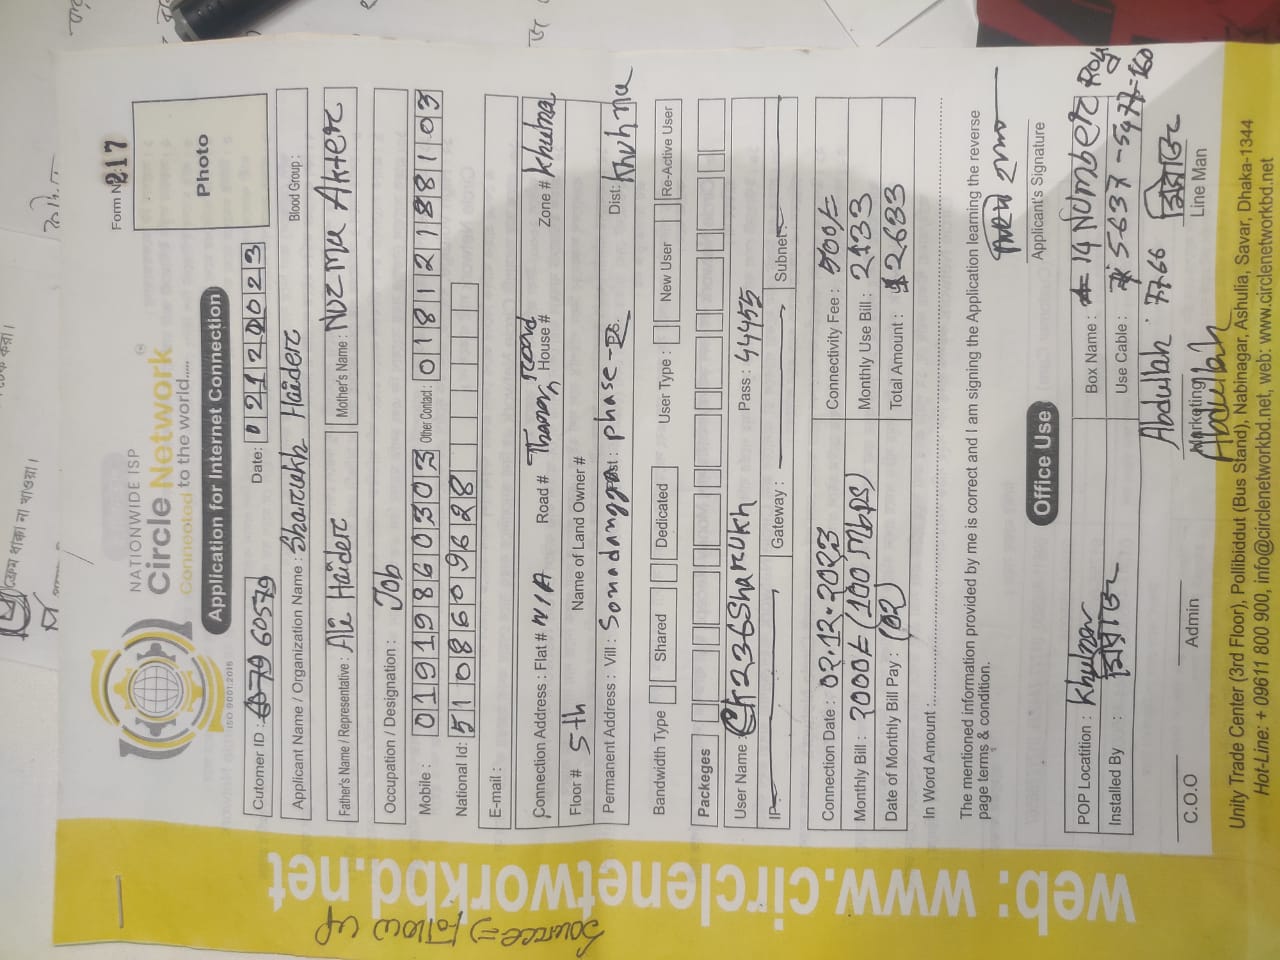 Form No: 217
NATIONWIDE ISP
Circle Network®
Connected to the world.....
ISO 9001:2015
Application for Internet Connection
Photo
Cutomer ID : 60579
Date: 02122023
Applicant Name / Organization Name : Sharukh Haider
Blood Group :
Father's Name / Representative : Ali Haider
Mother's Name : Nuzma Akter
Occupation / Designation : Job
Mobile : 01919860303 Other Contact: 01812188103
National Id: 5108609628
E-mail :
Connection Address : Flat # N/A Road # House # Zone # Khulna
Floor # 5th Name of Land Owner #
Permanent Address : Vill : Sonadanga Post: phase- Dist: Khulna
Bandwidth Type Shared Dedicated User Type : New User Re-Active User
Packeges
User Name : Ck236Sharukh Pass : 44455
IP Gateway : Subnet:
Connection Date : 02.12.2023 Connectivity Fee : 500/=
Monthly Bill : 2000/= (100 Mbps) Monthly Use Bill : 2133
Date of Monthly Bill Pay : (02) Total Amount : 2633
In Word Amount :
The mentioned information provided by me is correct and I am signing the Application learning the reverse
page terms & condition.
Applicant's Signature
Office Use
POP Locatition : Khulna Box Name : 14 Number Roy
Installed By : মিরাজ Use Cable :
Abdullah 7766 মিরাজ
C.O.O Admin Marketing Line Man
Abdullah
Unity Trade Center (3rd Floor), Pollibiddut (Bus Stand), Nabinagar, Ashulia, Savar, Dhaka-1344
Hot-Line: + 09611 800 900, info@circlenetworkbd.net, web: www.circlenetworkbd.net
web: www.circlenetworkbd.net
Source => Follow up